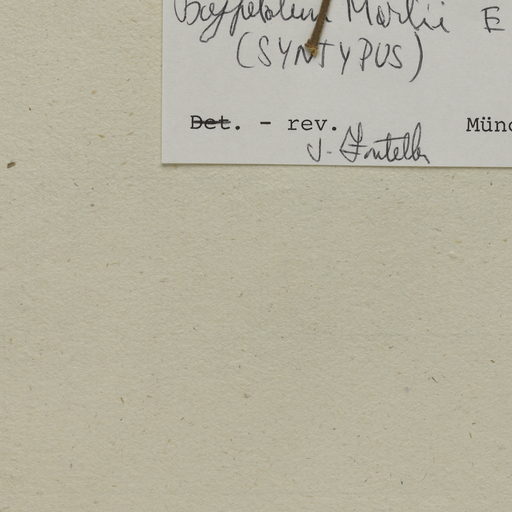 Oxypetalum Martii E
(SYNTYPUS)
Det. - rev. Münc
J. Fontella